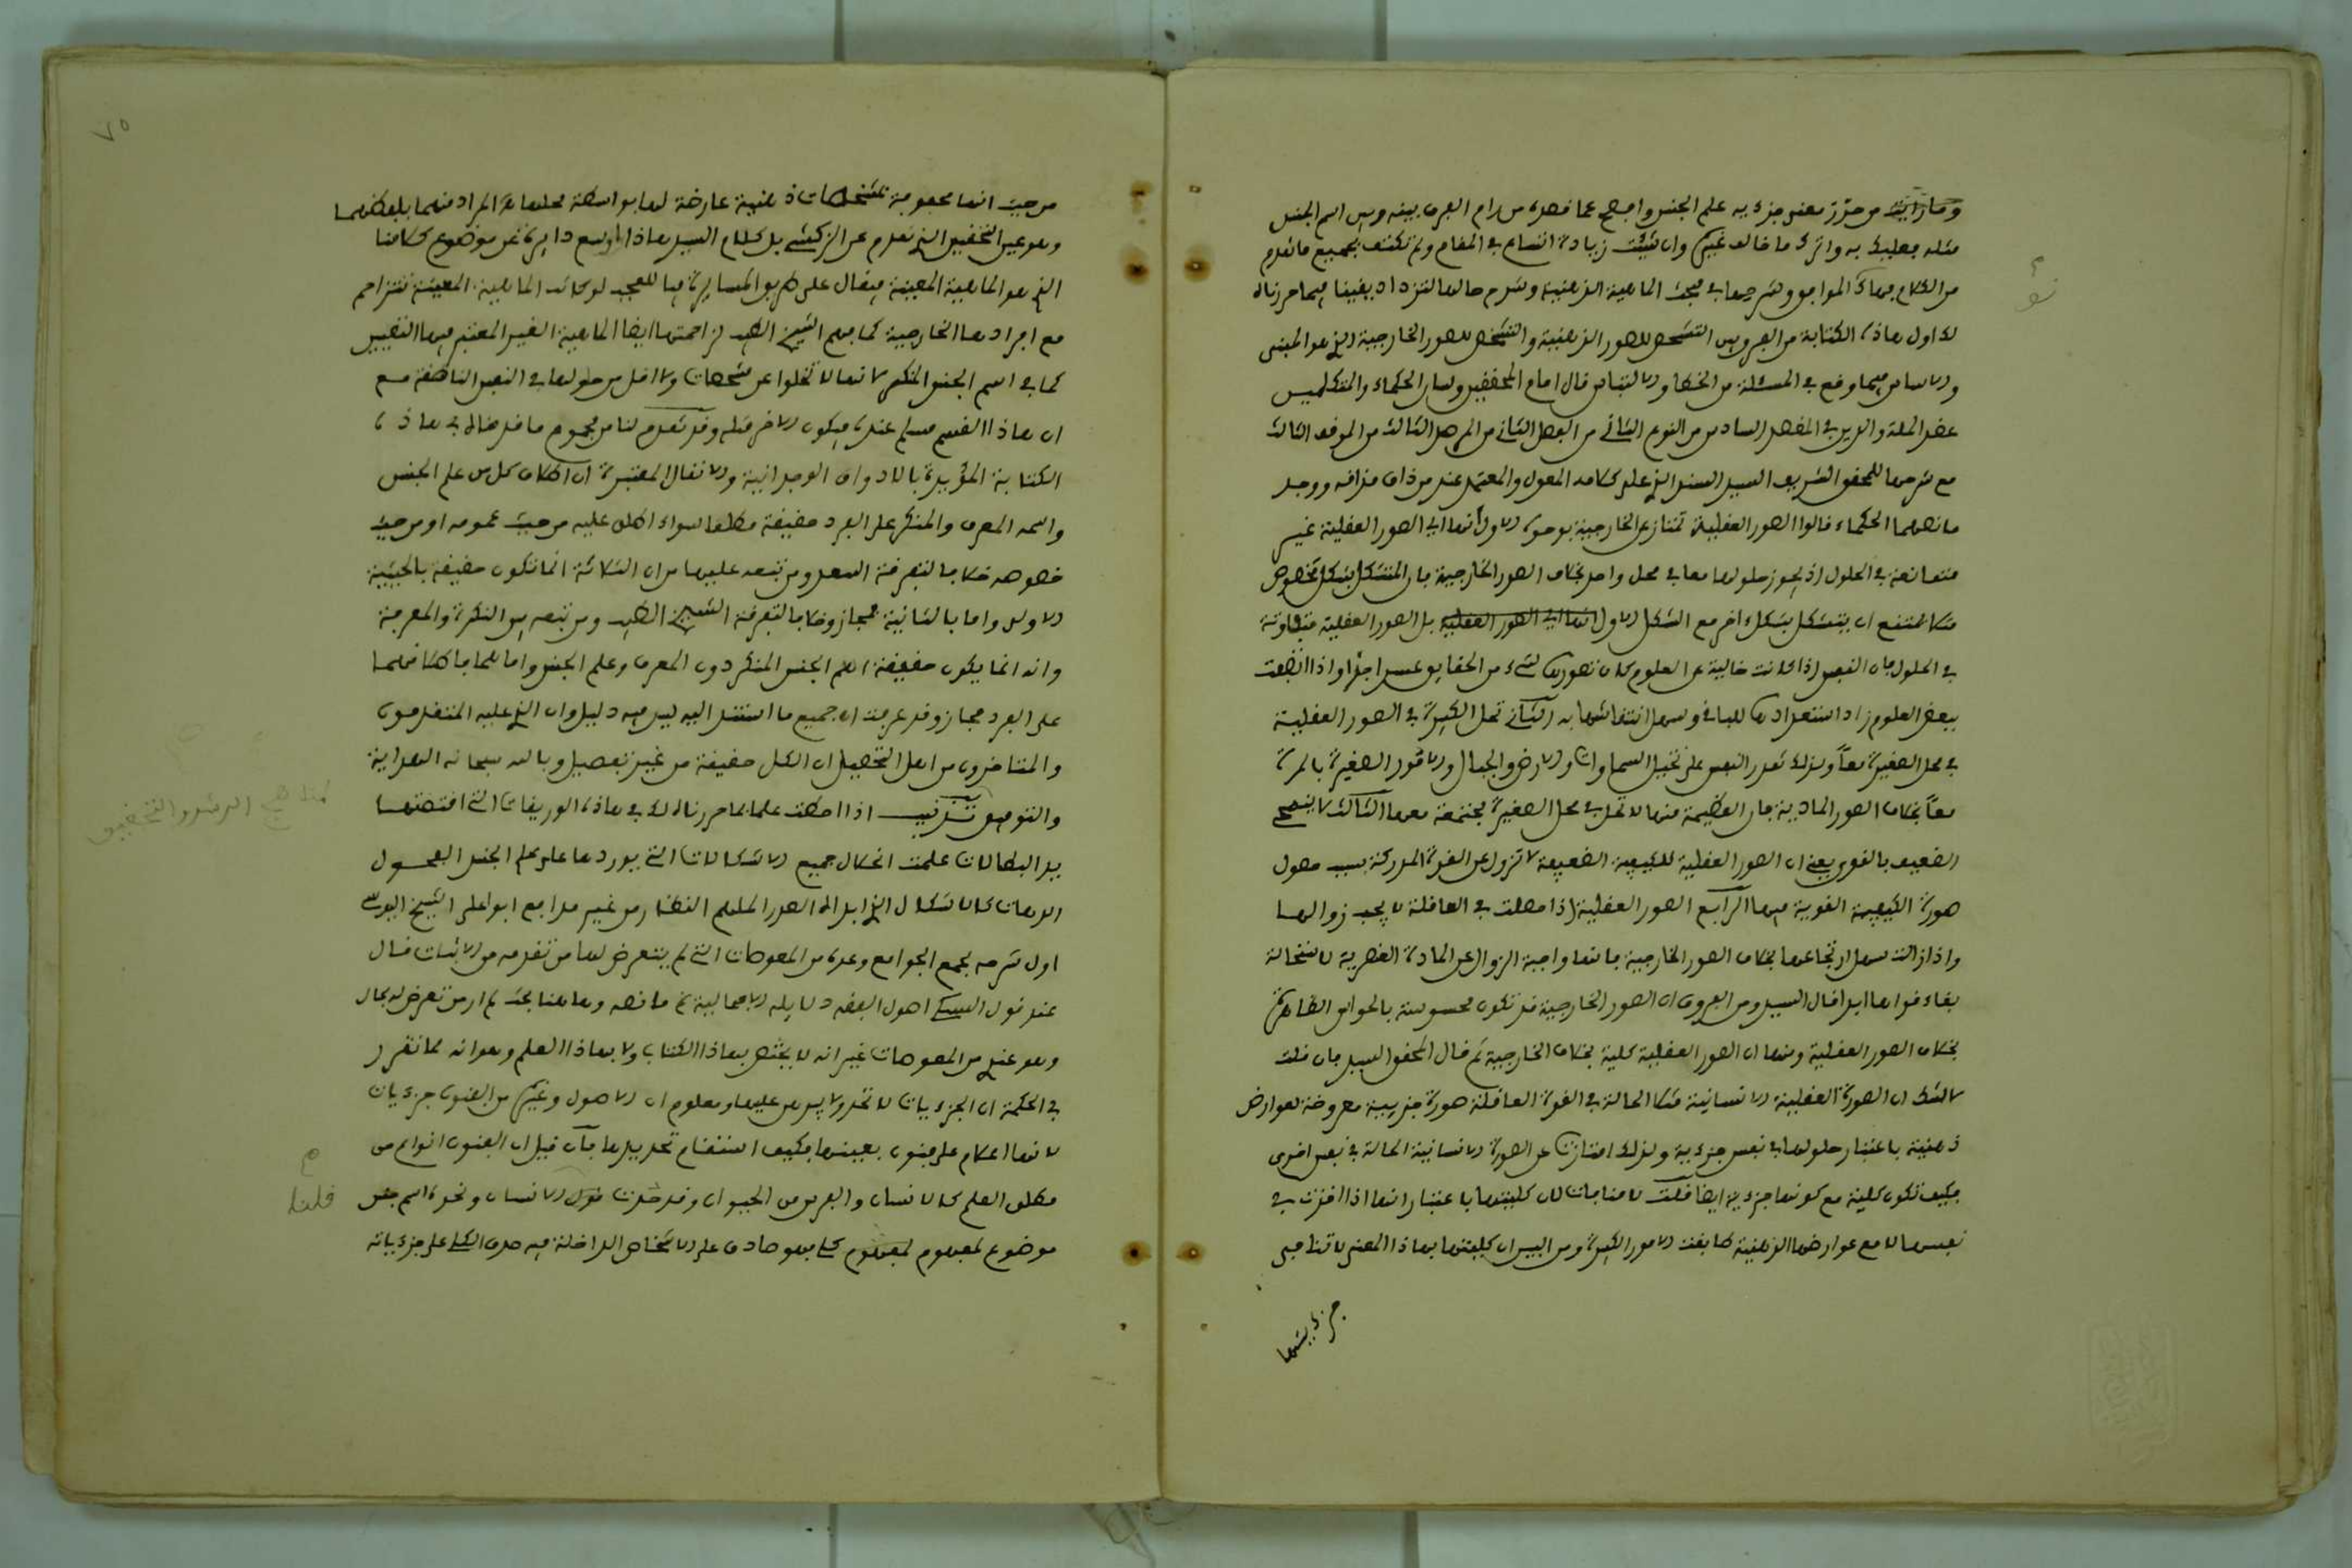 وما رأيت من حرّر معنى جزءيه علم الجنس وافصح عما قصده من رام الفرق بينه وبين اسم الجنس
مثله فعليك به واترك ما خالف غيره وان شئت زيادة اتساع في المقام ولم تكتف بجميع ما تقدم
من الكلام فهاك المواقف وشرحها في مبحث الماهية الذهنية وشرح حالها لتزداد يقينا فيما حررناه
لك اول هاذه الكتابة من الفرق بين التشخص للصور الذهنية والتشخص للصور الخارجية الذي هو المبنى
والاساس فيما وقع في المسئلة من الخطا والالتباس قال امام المحققين ولسان الحكماء والمتكلمين
عضد الملة والدين في المقصد السادس من النوع الثاني من الفصل الثاني من المرصد الثالث من الموقف الثالث
مع شرحها للمحقق الشريف السيد السند الذي على كلامه المعول والمعتمد عند من ذاق مذاقه ووجد
ما نصهما الحكماء قالوا الصور العقلية تمتاز عن الخارجية بوجوه الاول أنها اي الصور العقلية غير
متمانعة في الحلول اذ يجوز حلولها معا في محل واحد بخلاف الصور الخارجية فان المتشكل بشكل مخصوص
مثلا يمتنع ان يتشكل بشكل اخر مع الشكل الاول بل الصور العقلية متعاونة
في الحلول فان النفس اذا كانت خالية عن العلوم كان تصورها لشيء من الحقايق عسرا جدا واذا اتصفت
ببعض العلوم زاد استعدادها للباقي وسهل انتقاشها به الثاني تحل الكبيرة في الصور العقلية
في محل الصغيرة معاً ولذلك تقدر النفس على تخيل السماوات والارض والجبال والامور الصغيرة بالمرة
معاً بخلاف الصور المادية فان العظيمة منها لا تحل في محل الصغيرة مجتمعة معها الثالث لا ينمحي
الضعيف بالقوي يعني ان الصور العقلية للكيفية الضعيفة لا تزول عن القوة المدركة بسبب حصول
صورة الكيفية القوية فيها الرابع الصور العقلية اذا حصلت في العاقلة لا يجب زوالها
واذا زالت سهل ارتجاعها بخلاف الصور الخارجية فانها واجبة الزوال عن المادة العنصرية لاستحالة
بقاء قواها ابدا قال السيد ومن الفروق ان الصور الخارجية قد تكون محسوسة بالحواس الظاهرة
بخلاف الصور العقلية ومنها ان الصور العقلية كلية بخلاف الخارجية ثم قال المحقق السيد فان قلت
لا شك ان الصورة العقلية الانسانية مثلا الحالة في القوة العاقلة صورة جزيية معروضة لعوارض
ذهنية باعتبار حلولها في نفس جزءية ولذلك امتازت عن الصورة الانسانية الحالة في نفس اخرى
فكيف تكون كلية مع كونها جزءية ايضا قلت لا منافات لان كليتها باعتبار انها اذا اخذت في
نفسها لا مع عوارضها الذهنية طابقت الامور الكثيرة ومن البين ان كليتها بهاذا المعنى لا تنافي
جزءيتها
٧٥
من حيث انها محفوفة بمشخصات ذهنية عارضة لها بواسطة محلها هو المراد منهما بلفظهما
وهو عين التحقيق الذي تقدم عن الزركشي بل كلام السيد هاذا اوسع دايرة عن موضوع كلامنا
الذي هو الماهية المعينة فيقال على طريق المسايرة فيا للعجب لو كانت الماهية المعينة تتزاحم
مع افرادها الخارجية كما فهم الشيخ الطيب لزاحمتها ايضا الماهية الغير المعتبر فيها التعيين
كما في اسم الجنس المنكر لانها لا تخلوا عن مشخصات ولا اقل من حلولها في النفس الناطقة مع
ان هاذا القسم مسلم عنده فيكون الاخر مثله وقد تقدم لنا من مجموع ما قد خالف في هاذه
الكتابة المؤيدة بالاذواق الوجدانية والانقال المعتبرة ان اطلاق كل من علم الجنس
واسمه المعرف والمنكر على الفرد حقيقة مطلقا سواء اطلق عليه من حيث عمومه او من حيث
خصوصه خلافا لتفرقة السعد ومن تبعه عليها من ان الثلاثة انما تكون حقيقة بالحيثية
الاولى واما بالثانية فمجاز وخلافا لتفرقة الشيخ الطيب ومن تبعه بين النكرة والمعرفة
وانه انما يكون حقيقة اسم الجنس المنكر دون المعرف وعلم الجنس واما هما فاطلاقهما
على الفرد مجاز وقد عرفت ان جميع ما استند اليه ليس فيه دليل وان الذي عليه المتقدمون
والمتاخرون من اهل التحصيل ان الكل حقيقة من غير تفصيل وبالله سبحانه الهداية
والتوفيق اذا احطت علما بما حررناه لك في هاذه الوريقات التي اقتضتها
يد البطالات علمت انحلال جميع الاشكالات التي يوردها على علم الجنس الفحول
الدهات كالاشكال الذي ابداه الصدر الملهم النظار من غير مدافع ابو علي الشيخ اليوسي
اول شرحه لجمع الجوامع وعده من المعوصات التي لم يتعرض لها من تقدمه من الاثبات فقال
عند قول السبكي اصول الفقه دلايله الاجمالية ثم ما نصه وهاهنا بحث لم ار من تعرض له بحال
وهو عندي من المعوصات غير انه لا يختص بهاذا الكتاب ولا بهاذا العلم وهو انه لما تقرر
في الحكمة ان الجزءيات لا تحد ولا يبرهن عليها ومعلوم ان الاصول وغيره من الفنون جزءيات
لانها اعلام على فنون بعينها فكيف استقام تحديدها فان قيل ان الفنون انواع من
مطلق العلم كالانسان والفرس من الحيوان وقد حدت قلنا الانسان ونحوه اسم جنس
موضوع لمفهوم كلي فهو صادق على الاشخاص الداخلة فيه صدق الكلي على جزءياته
مناهج الرشد والتحقيق
قلنا